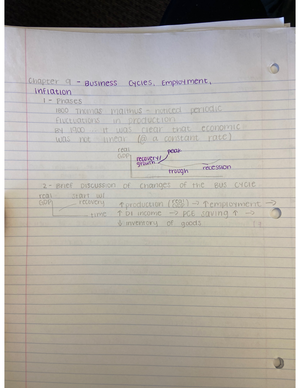 Chapter 9 - Business Cycles, Employment,
Inflation
1 - Phases
1800 Thomas Malthus - noticed periodic
fluctuations in production
By 1900 it was clear that economic
was not linear (@ a constant rate)
real
GDP
peak
recovery/
growth
trough
recession
2 - Brief discussion of changes of the Bus Cycle
real
GDP
start w/
recovery
time
↑ production (GDP) → ↑ employment →
↑ DI income → PCE saving ↑ →
inventory of goods